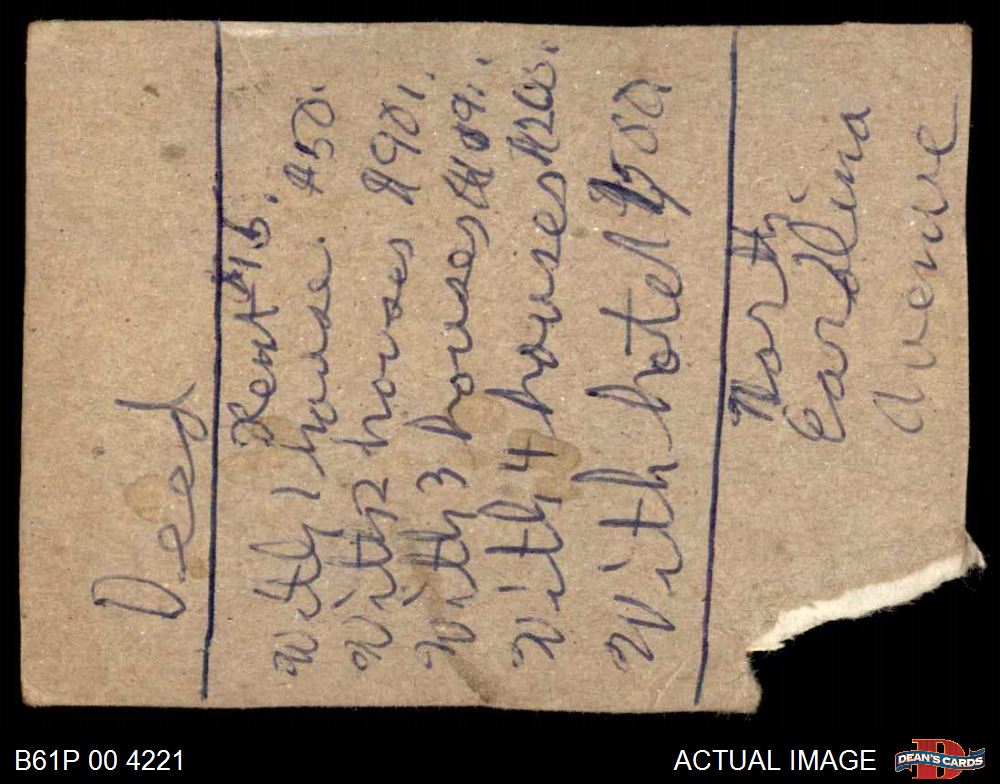 Deed
Rent $15.
With 1 house. $50.
With 2 houses $90.
With 3 houses
With 4 houses $200.
With hotel $500
North
Carolina
Avenue
B61P 00 4221
ACTUAL IMAGE
DEAN'S CARDS